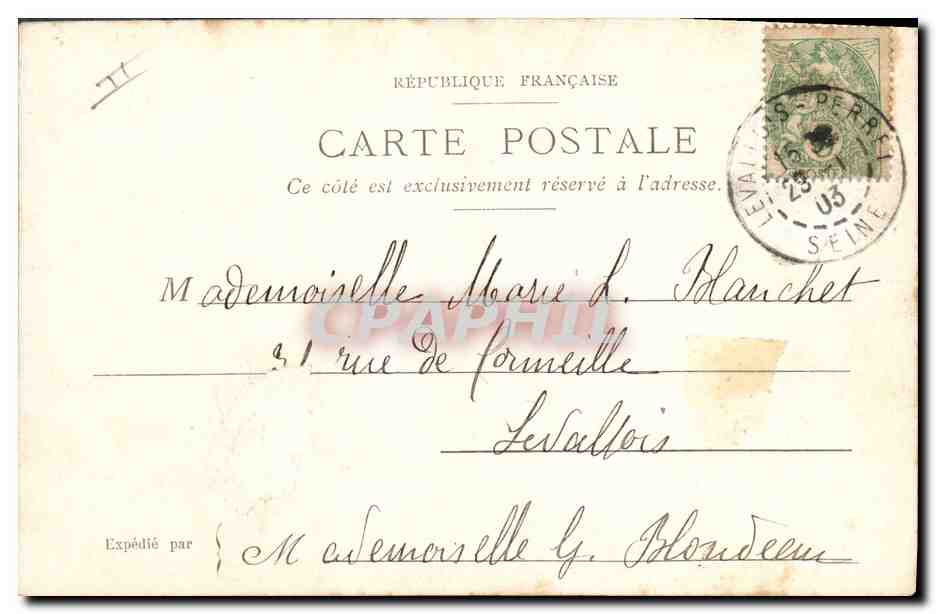 RÉPUBLIQUE FRANÇAISE
CARTE POSTALE
Ce côté est exclusivement réservé à l'adresse.
LEVALLOIS-PERRET
03
SEINE
Mademoiselle Marie L. Blanchet
CPAPHIL
31 rue de Corneille
Levallois
Expédié par
Mademoiselle G. Blondeau